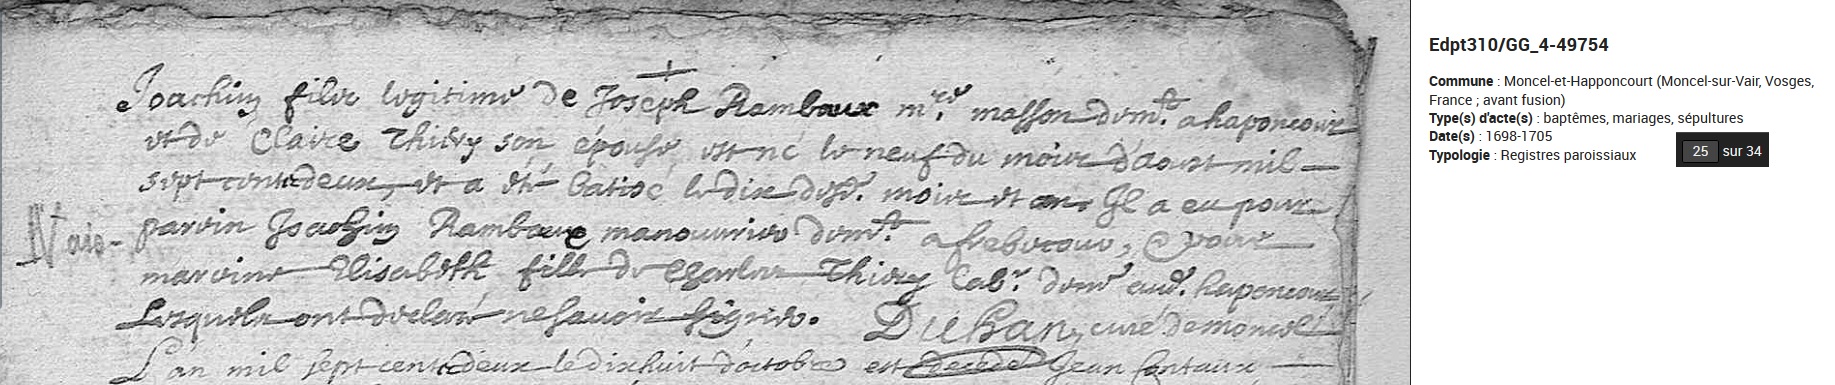 Joachim filz legitime de Joseph Rambaux mre masson demt a haponcour
et de Claire Thiery son épouse est né le neuf du mois d'aoust mil
sept cents deux, et a été batisé le dix desd. mois et an. Il a eu pour
parein Joachim Rambaux manouvrier demt a frebecour, & pour
mareine Elisabeth fille de Charles Thiery lab.r demt aud. haponcourt
Lesquels ont declaré ne savoir signer. Duhan, curé de moncel
L'an mil sept cents deux le dixhuit d'octobre est decedé Jean
Edpt310/GG_4-49754
Commune : Moncel-et-Happoncourt (Moncel-sur-Vair, Vosges,
France ; avant fusion)
Type(s) d'acte(s) : baptêmes, mariages, sépultures
Date(s) : 1698-1705
Typologie : Registres paroissiaux
25 sur 34